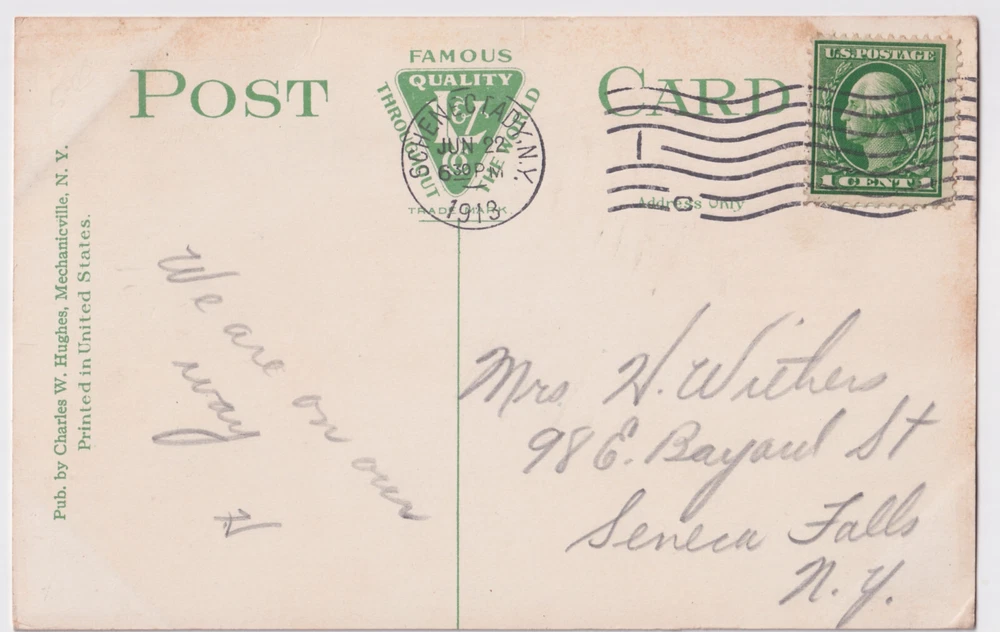 POST CARD
FAMOUS
QUALITY
THROUGHOUT THE WORLD
TRADE MARK.
SCHENECTADY, N.Y.
JUN 22
6 30 P.M.
1913
Address Only
U.S. POSTAGE
1 CENT 1
Pub. by Charles W. Hughes, Mechanicville, N. Y.
Printed in United States.
We are on our
way
H
Mrs H. Withers
98 E. Bayard St
Seneca Falls
N.Y.